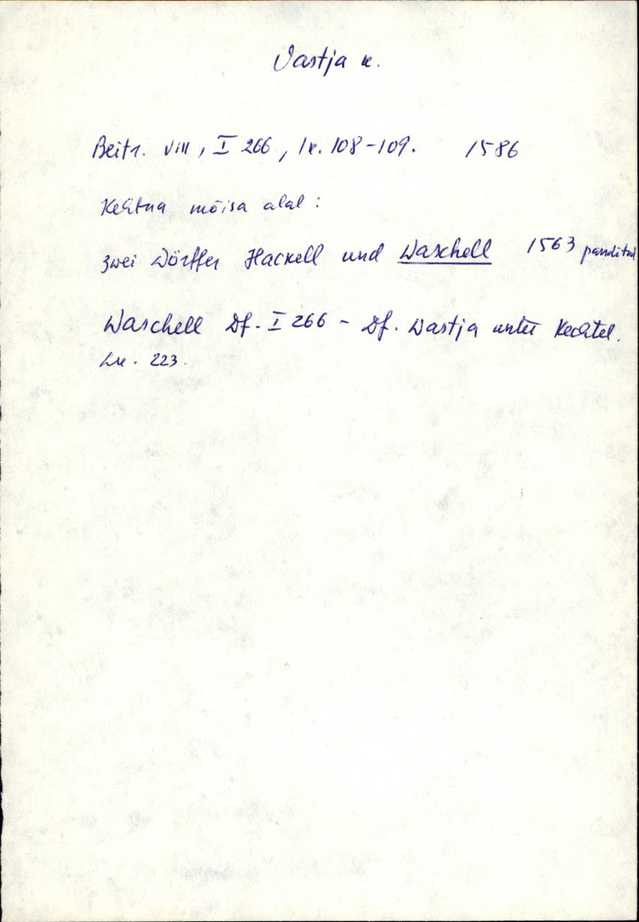 Vastja k.
Beitr. VIII, I 266, lk. 108-109. 1586
Kehtna mõisa alal:
zwei Dörffer Hackell und Waschell 1563 panditud
Waschell Df. I 266 - Df. Wastja unter Kechtel.
Lk. 223.